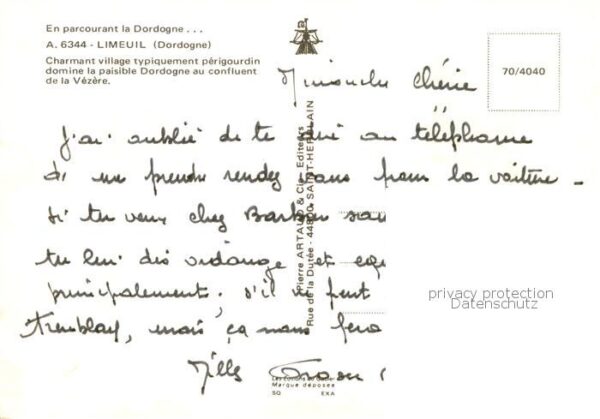 En parcourant la Dordogne . . .
A. 6344 - LIMEUIL (Dordogne)
Charmant village typiquement périgourdin
domine la paisible Dordogne au confluent
de la Vézère.
70/4040
chérie
J'ai oublié de te au téléphone
de me prendre rendez vous pour la voiture -
si tu veux chez
tu lui dis vidange et
principalement. s'il ne peut
Tremblay, mais ça nous fera
Mille
Pierre ARTAUD & Cie, Editeurs
Rue de la Dutée - 44800 SAINT-HERBLAIN
privacy protection
Datenschutz
Marque déposée
SQ EXA